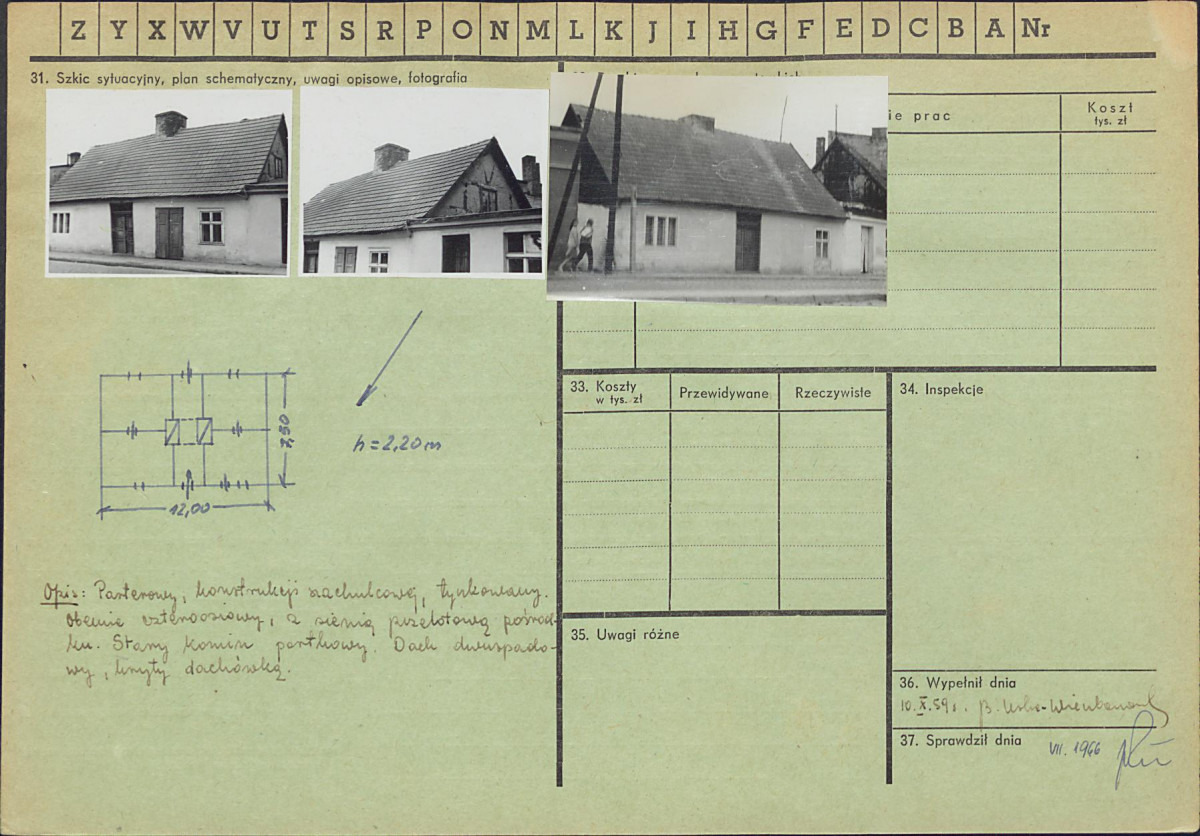 Z Y X W V U T S R P O N M L K J I H G F E D C B A Nr
31. Szkic sytuacyjny, plan schematyczny, uwagi opisowe, fotografia
ie prac
Koszt
tys. zł
7,50
12,00
h = 2,20 m
Opis: Parterowy, konstrukcji szachulcowej, tynkowany.
Obecnie czteroosiowy, z sienią przelotową pośrod-
ku. Stary komin portkowy. Dach dwuspado-
wy, kryty dachówką.
33. Koszty
w tys. zł
Przewidywane
Rzeczywiste
34. Inspekcje
35. Uwagi różne
36. Wypełnił dnia
10.X.59 r. B.
37. Sprawdził dnia
VII. 1966